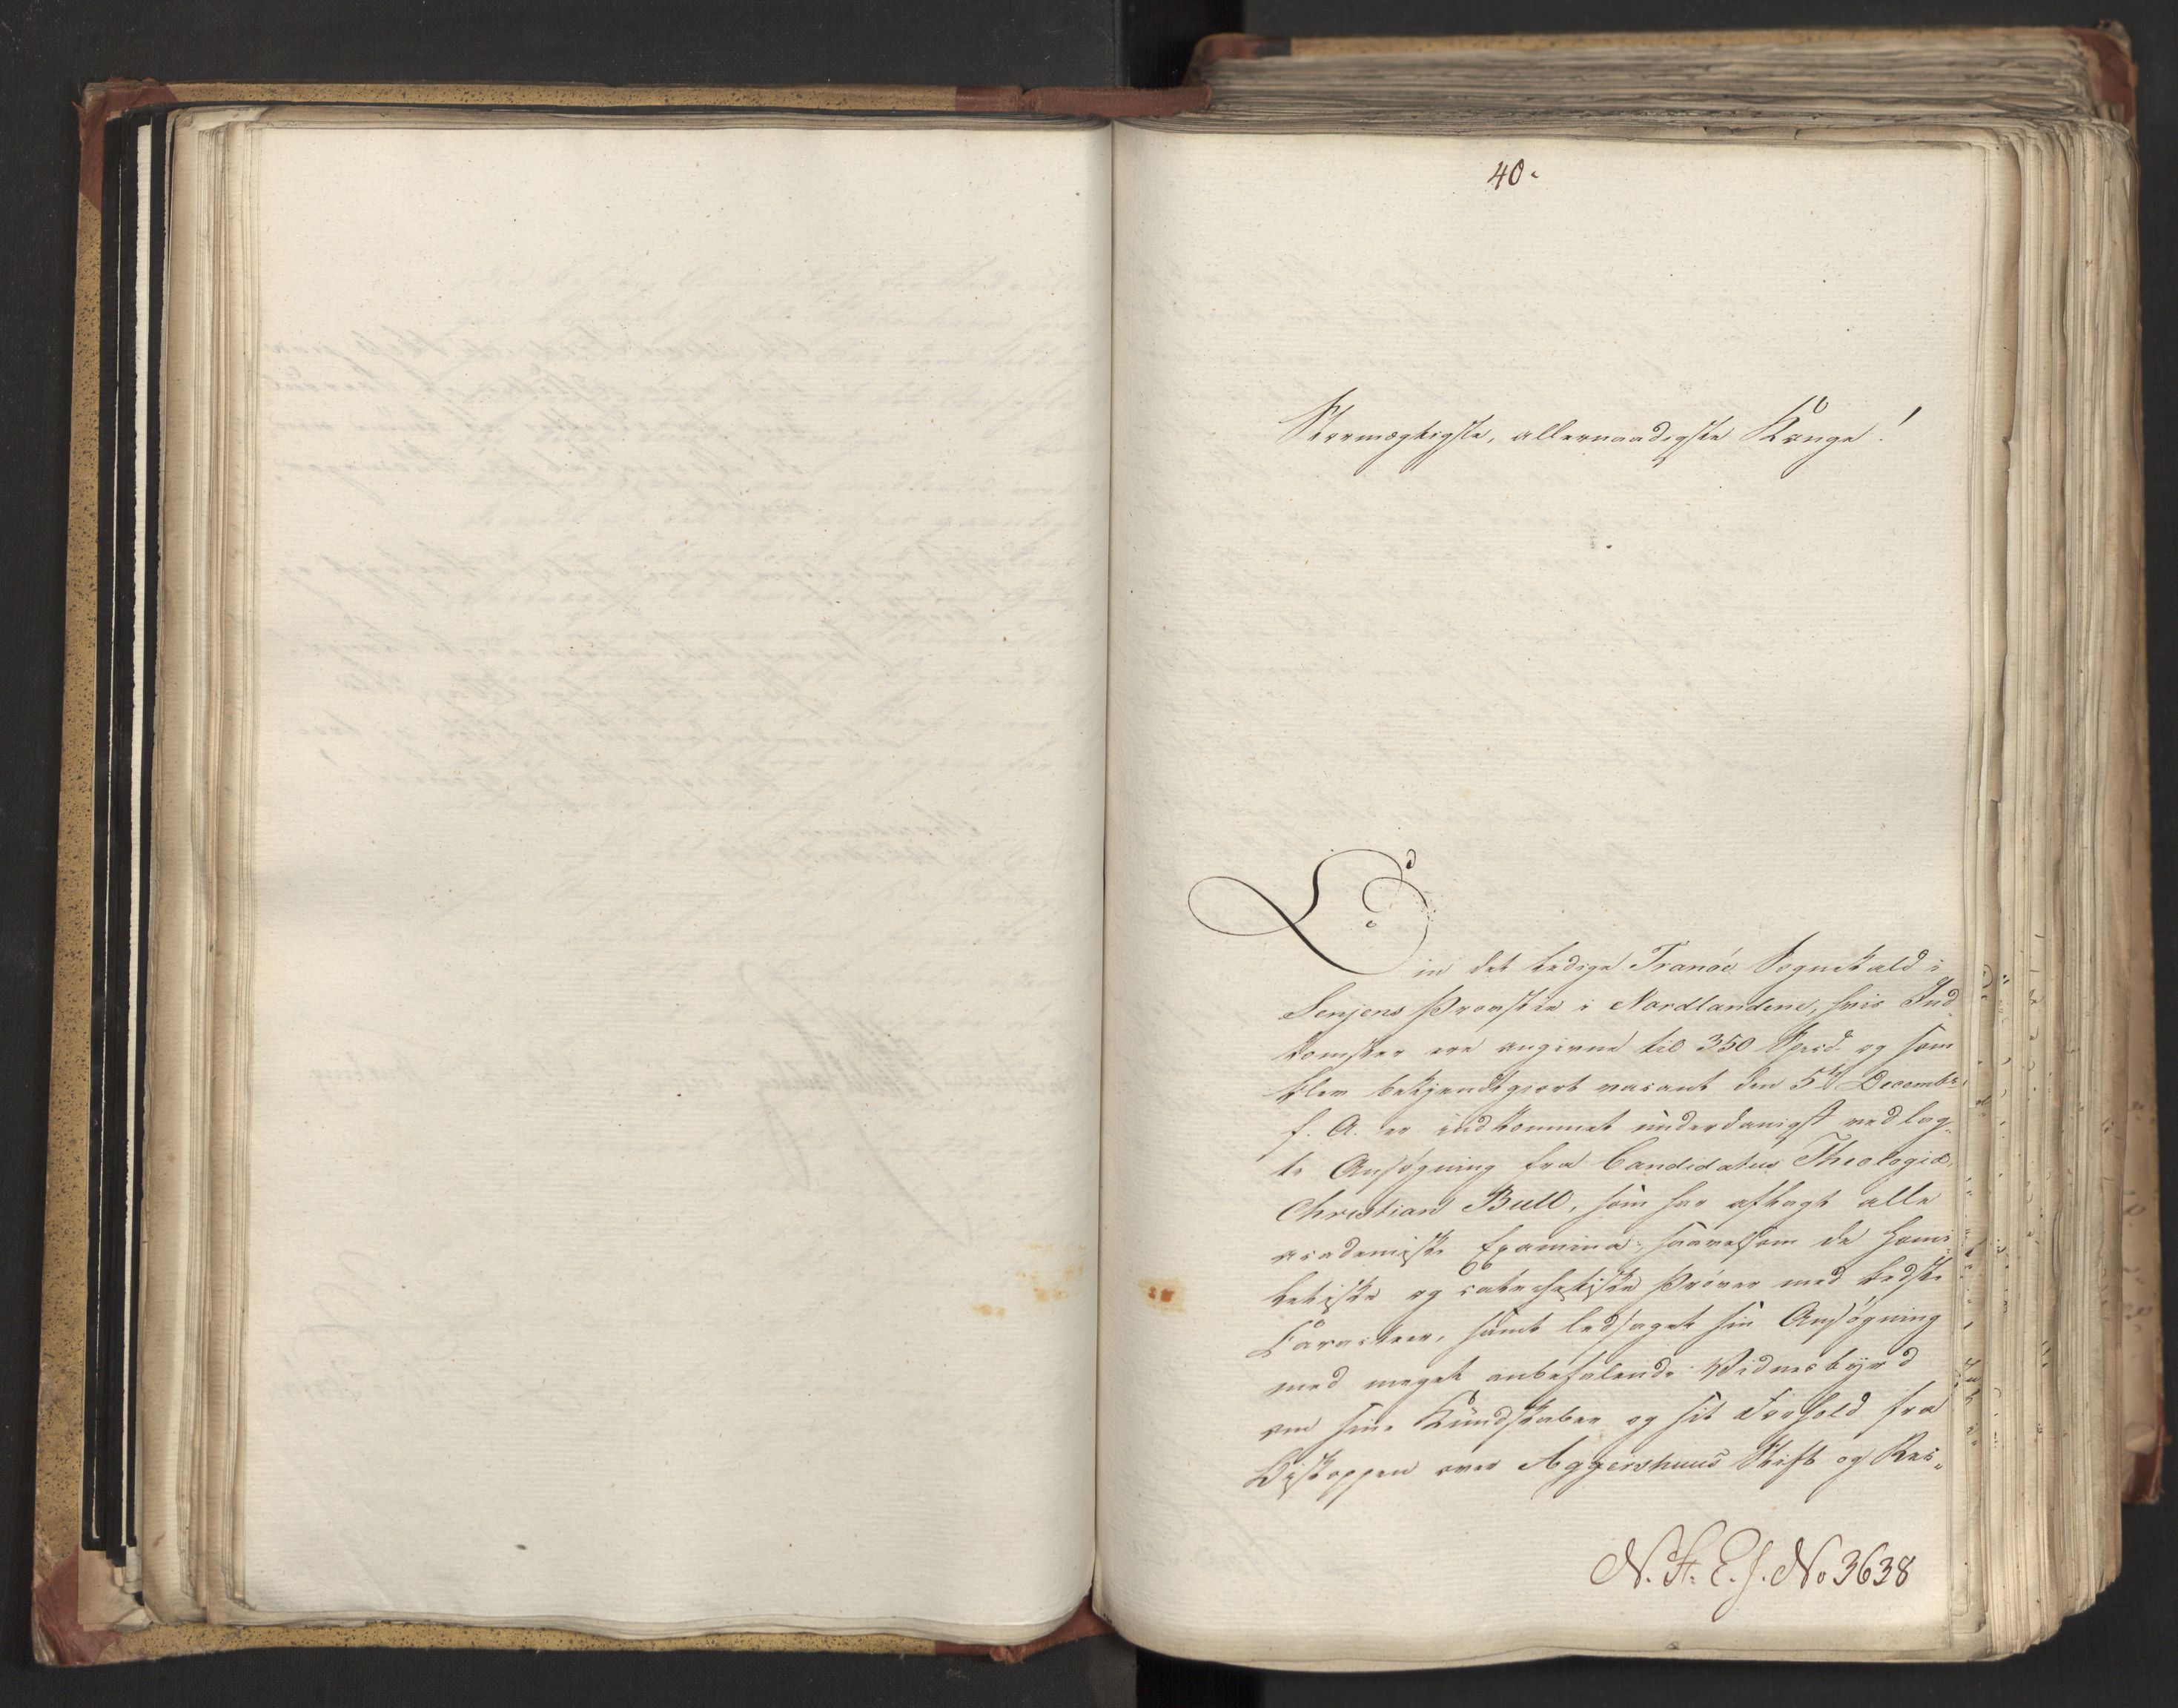 40.
Stormægtigste, allernaadigste Konge!
Om det ledige Tranöe Sognekald i
Senjens Provstie i Nordlandene, hvis Ind-
komster ere angivne til 350 Spcd. og som
blev bekjendtgjort vacant den 5te Decembr.
f. A. er indkommet underdanigst vedlag-
te Ansøgning fra Candidatus Theologiæ,
Christian Bull, som har aflagt alle
academiske Examina, saavelsom de homi-
letiske og catechetiske Prøver med bedste
Caracteer, samt ledsaget sin Ansøgning
med meget anbefalende Vidnesbyrd
om sine Kundskaber og sit Forhold fra
Biskoppen over Aggershuus Stift og Rec-
N. St. E. J. No 3638